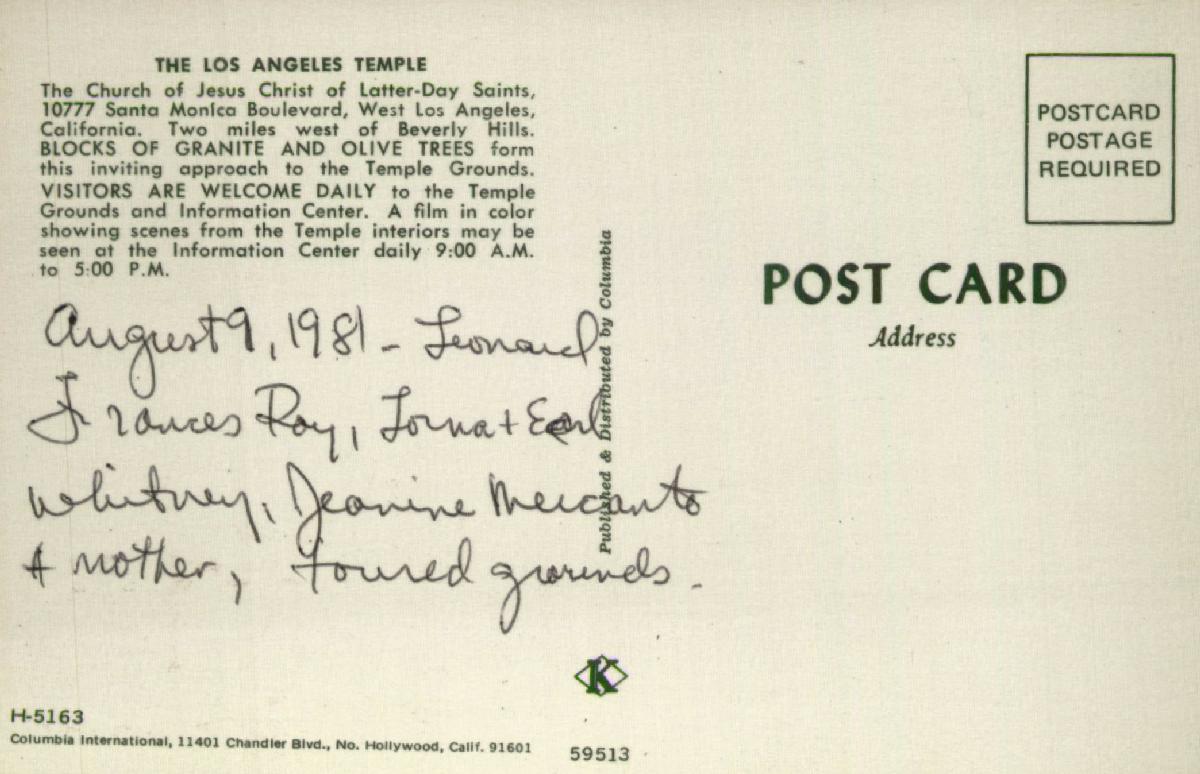 THE LOS ANGELES TEMPLE
The Church of Jesus Christ of Latter-Day Saints,
10777 Santa Monica Boulevard, West Los Angeles,
California. Two miles west of Beverly Hills.
BLOCKS OF GRANITE AND OLIVE TREES form
this inviting approach to the Temple Grounds.
VISITORS ARE WELCOME DAILY to the Temple
Grounds and Information Center. A film in color
showing scenes from the Temple interiors may be
seen at the Information Center daily 9:00 A.M.
to 5:00 P.M.
August 9, 1981 - Leonard
Frances Roy, Lorna + Earl
Whitney, Jeanine Mercanto
+ mother, toured grounds.
H-5163
Columbia International, 11401 Chandler Blvd., No. Hollywood, Calif. 91601
Published & Distributed by Columbia
K
59513
POSTCARD
POSTAGE
REQUIRED
POST CARD
Address